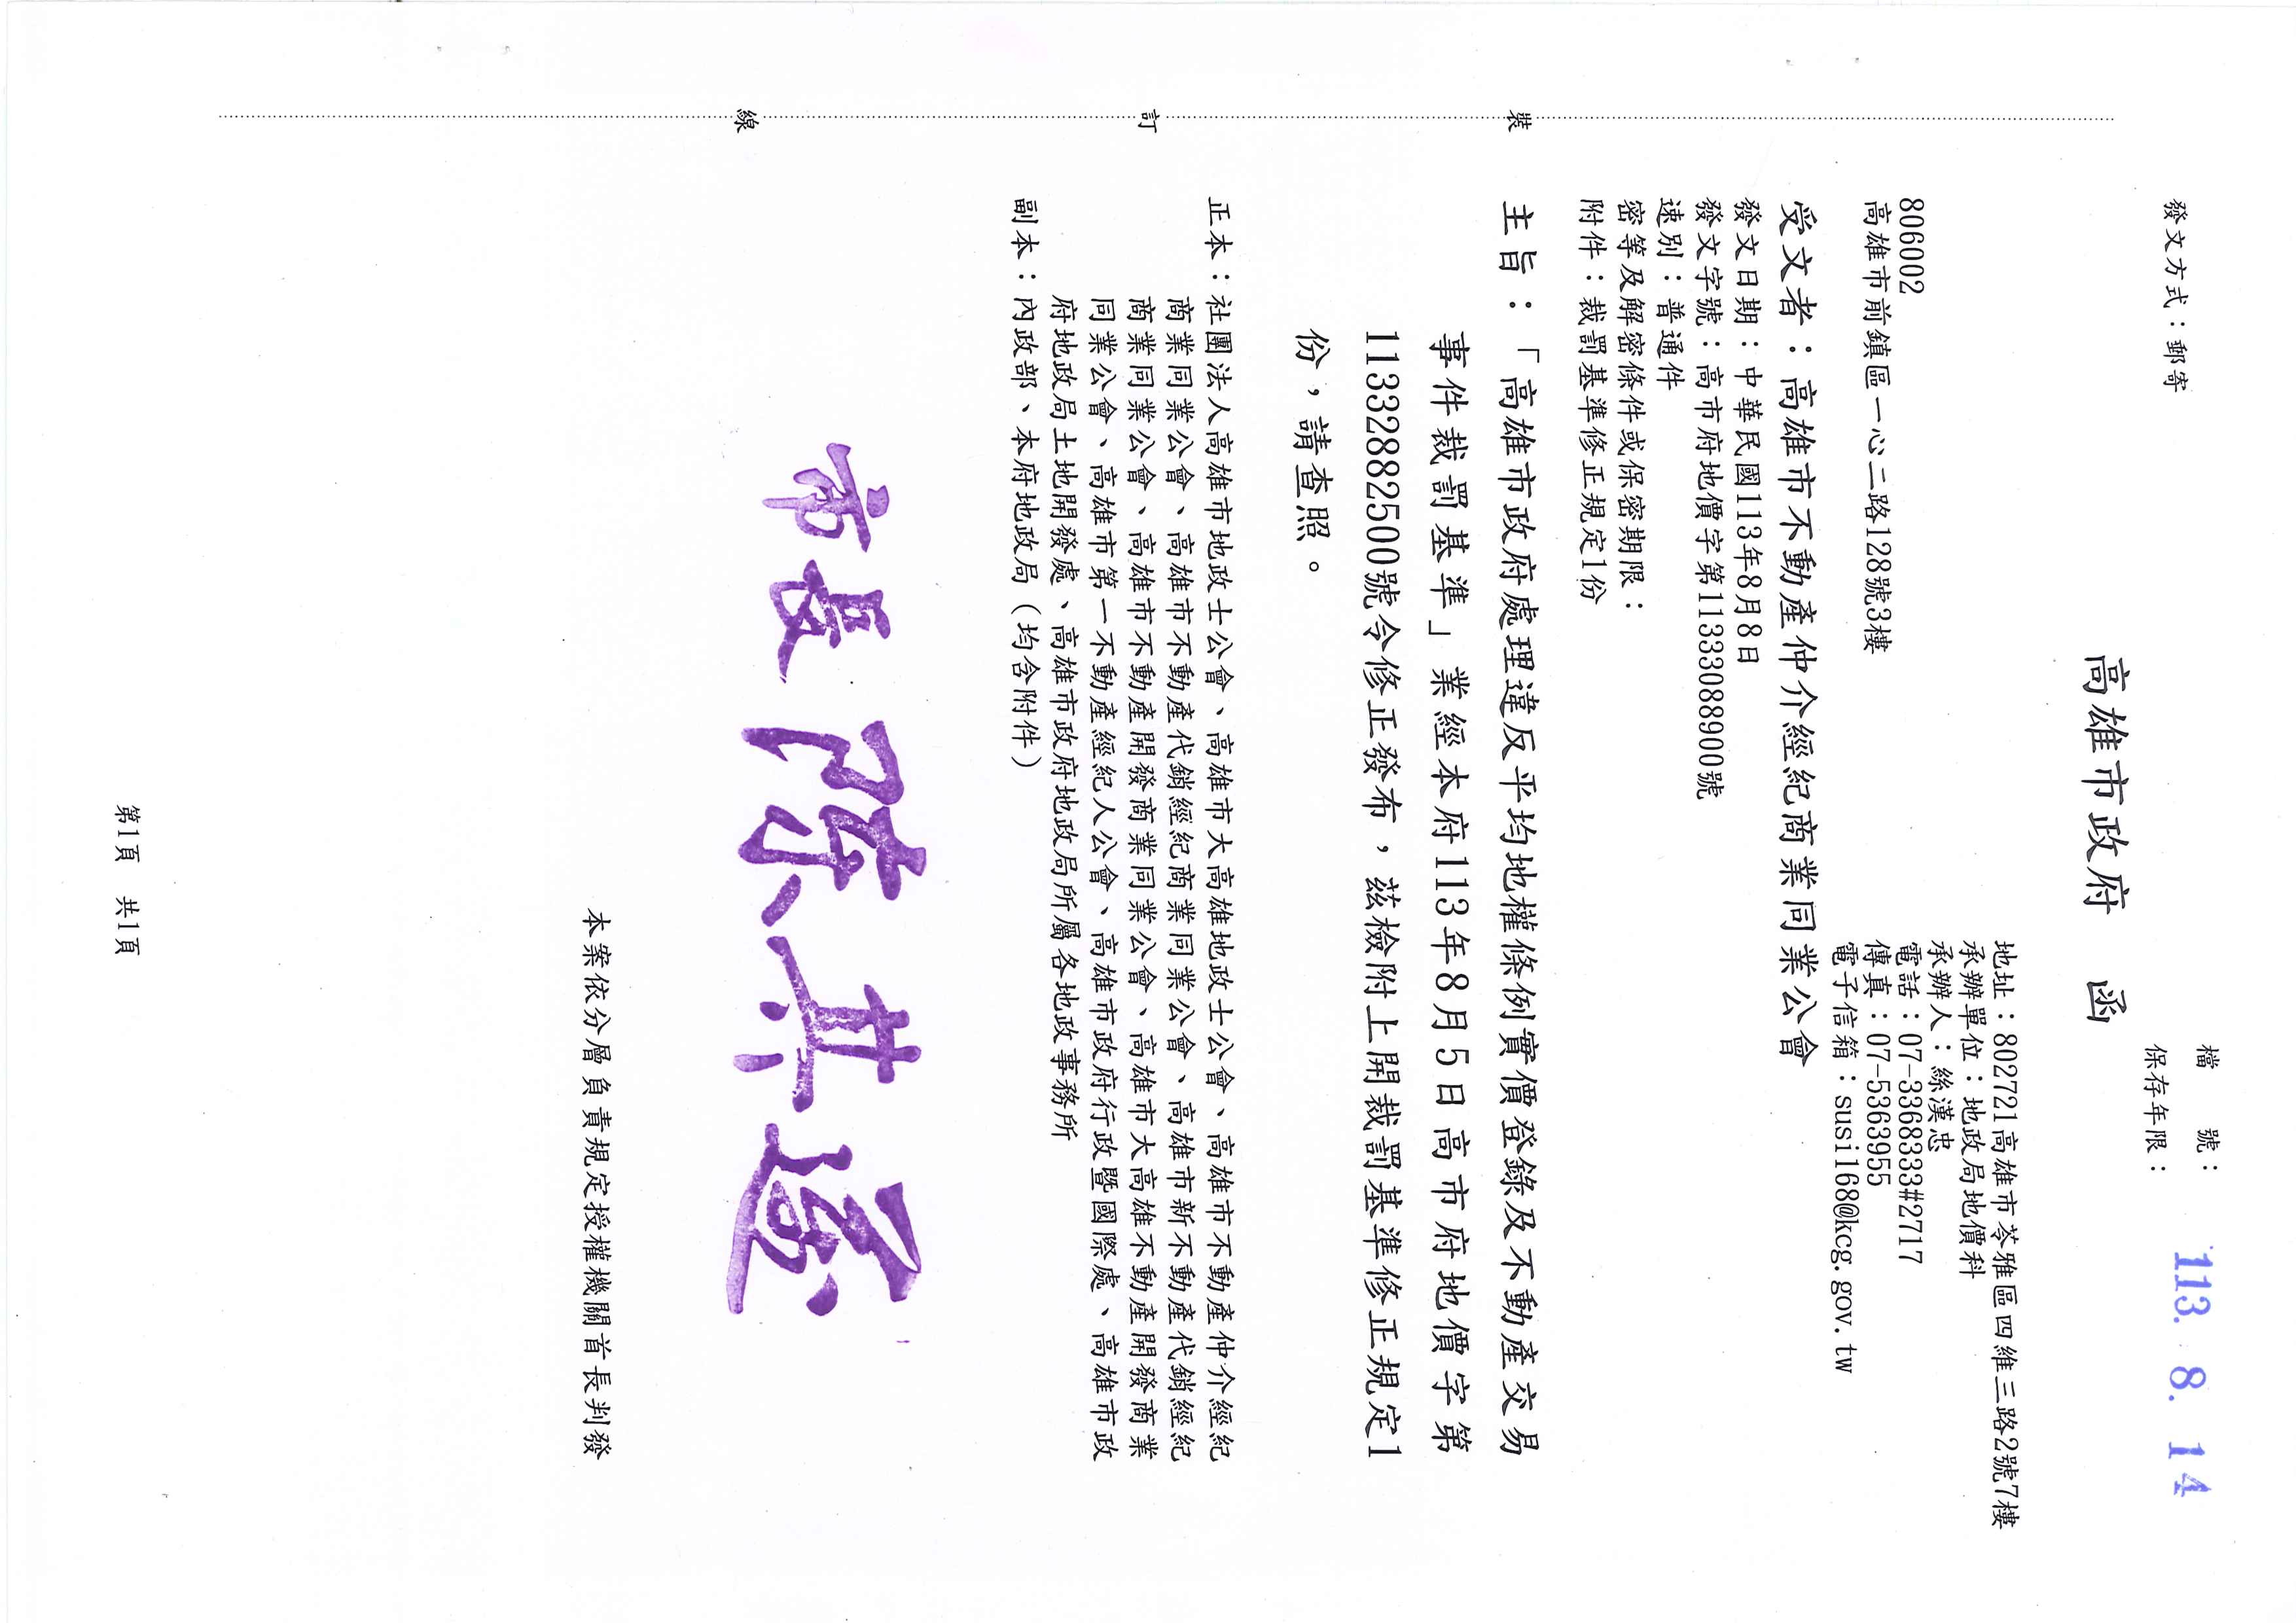 發文方式：郵寄
檔　　號：
保存年限：
113. 8. 14
高雄市政府　函
地址：802721高雄市苓雅區四維三路2號7樓
承辦單位：地政局地價科
承辦人：絲漢忠
電話：07-3368333#2717
傳真：07-5363955
電子信箱：susi168@kcg.gov.tw
806002
高雄市前鎮區一心二路128號3樓
受文者：高雄市不動產仲介經紀商業同業公會
發文日期：中華民國113年8月8日
發文字號：高市府地價字第11333088900號
速別：普通件
密等及解密條件或保密期限：
附件：裁罰基準修正規定1份
主旨：「高雄市政府處理違反平均地權條例實價登錄及不動產交易
事件裁罰基準」業經本府113年8月5日高市府地價字第
11332882500號令修正發布，茲檢附上開裁罰基準修正規定1
份，請查照。
正本：社團法人高雄市地政士公會、高雄市大高雄地政士公會、高雄市不動產仲介經紀
商業同業公會、高雄市不動產代銷經紀商業同業公會、高雄市新不動產代銷經紀
商業同業公會、高雄市不動產開發商業同業公會、高雄市大高雄不動產開發商業
同業公會、高雄市第一不動產經紀人公會、高雄市政府行政暨國際處、高雄市政
府地政局土地開發處、高雄市政府地政局所屬各地政事務所
副本：內政部、本府地政局（均含附件）
裝
訂
線
市長 陳其邁
本案依分層負責規定授權機關首長判發
第1頁　共1頁